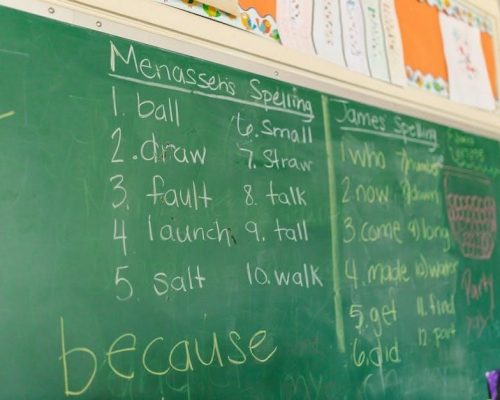 Menasseh's Spelling
1. ball
2. draw
3. fault
4 launch
5. salt
6. Small
7. Straw
8. talk
9. tall
10. walk
because
James' Spelling
1 who
2 now
3. come
4. made
5. get
6. did
7) number
9) long
10) water
11. find
12 part
Party